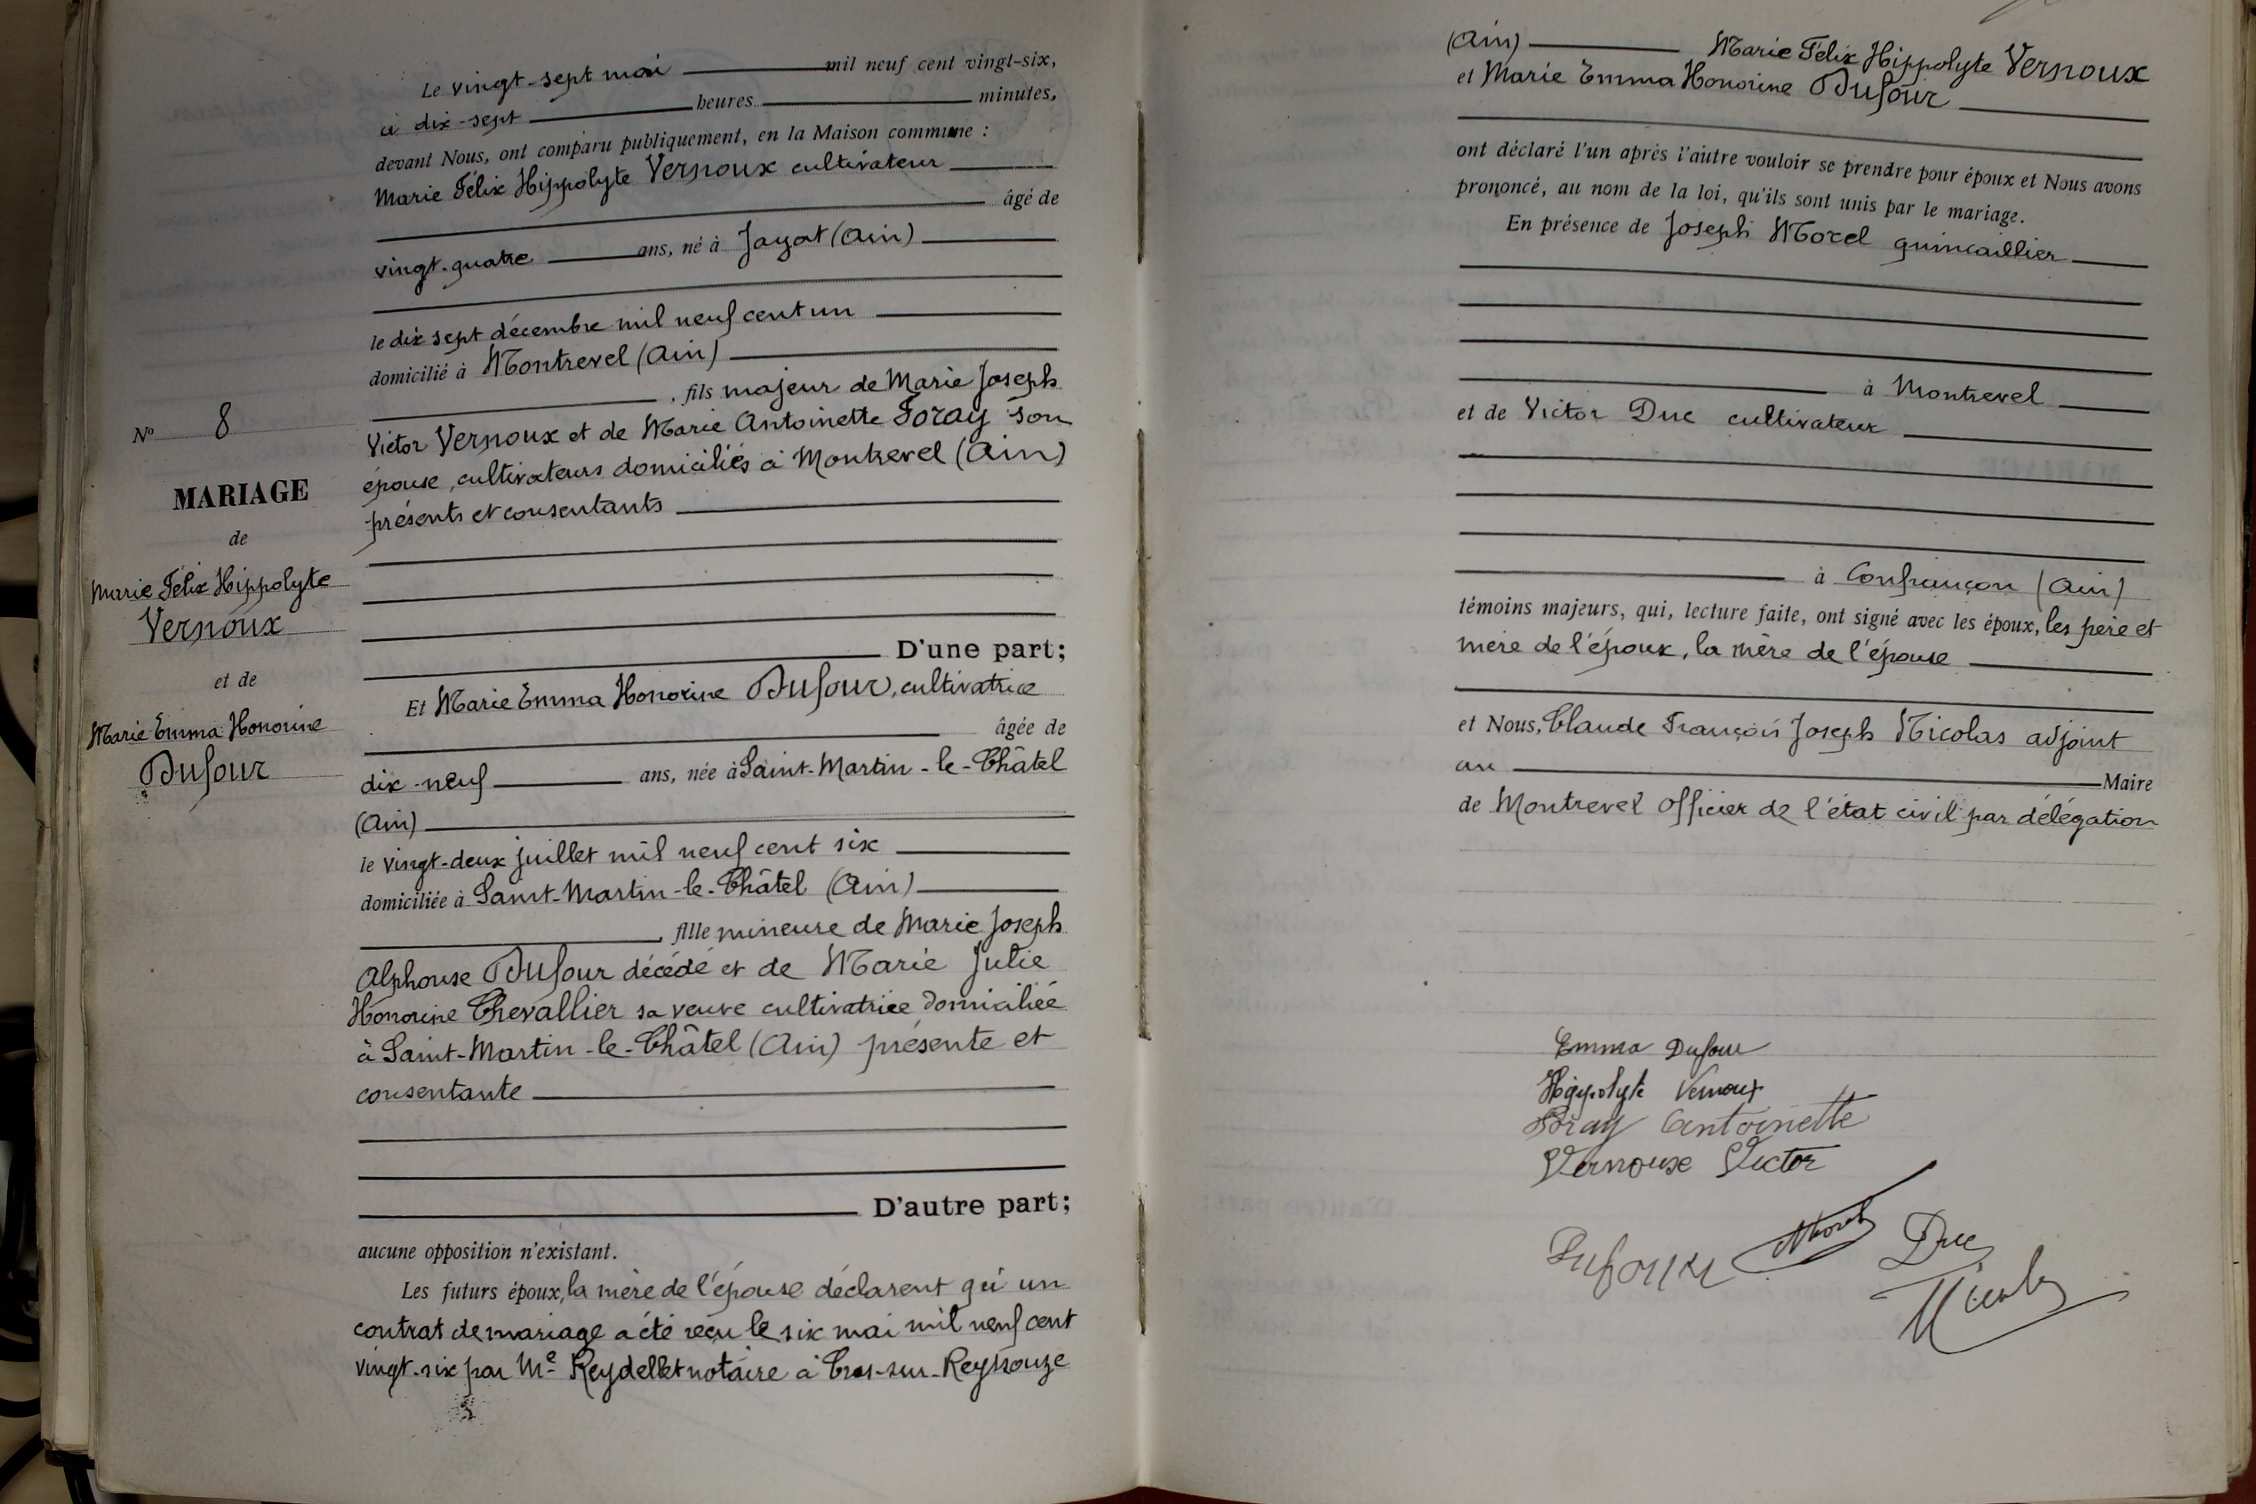 Le vingt-sept mai mil neuf cent vingt-six,
à dix-sept heures minutes,
devant Nous, ont comparu publiquement, en la Maison commune :
Marie Félix Hippolyte Vernoux cultivateur
âgé de
vingt-quatre ans, né à Jayat (Ain)
le dix sept décembre mil neuf cent un
domicilié à Montrevel (Ain)
, fils majeur de Marie Joseph
Victor Vernoux et de Marie Antoinette Foray son
épouse, cultivateurs domiciliés à Montrevel (Ain)
présents et consentants
D'une part;
Et Marie Emma Honorine Dufour, cultivatrice
âgée de
dix-neuf ans, née à Saint-Martin-le-Châtel
(Ain)
le vingt-deux juillet mil neuf cent six
domiciliée à Saint-Martin-le-Châtel (Ain)
, fille mineure de Marie Joseph
Alphonse Dufour décédé et de Marie Julie
Honorine Chevallier sa veuve cultivatrice domiciliée
à Saint-Martin-le-Châtel (Ain) présente et
consentante
D'autre part;
aucune opposition n'existant.
Les futurs époux, la mère de l'épouse déclarent qu'un
contrat de mariage a été reçu le six mai mil neuf cent
vingt-six par Me Reydellet notaire à Cras-sur-Reyssouze
No 8
MARIAGE
de
Marie Félix Hippolyte
Vernoux
et de
Marie Emma Honorine
Dufour
(Ain) Marie Félix Hippolyte Vernoux
et Marie Emma Honorine Dufour
ont déclaré l'un après l'autre vouloir se prendre pour époux et Nous avons
prononcé, au nom de la loi, qu'ils sont unis par le mariage.
En présence de Joseph Morel quincaillier
à Montrevel
et de Victor Duc cultivateur
à Confrançon (Ain)
témoins majeurs, qui, lecture faite, ont signé avec les époux, les père et
mère de l'époux, la mère de l'épouse
et Nous, Claude François Joseph Nicolas adjoint
au Maire
de Montrevel officier de l'état civil par délégation
Emma Dufour
Hippolyte Vernoux
Foray Antoinette
Vernoux Victor
Dufour Morel Duc
Nicolas